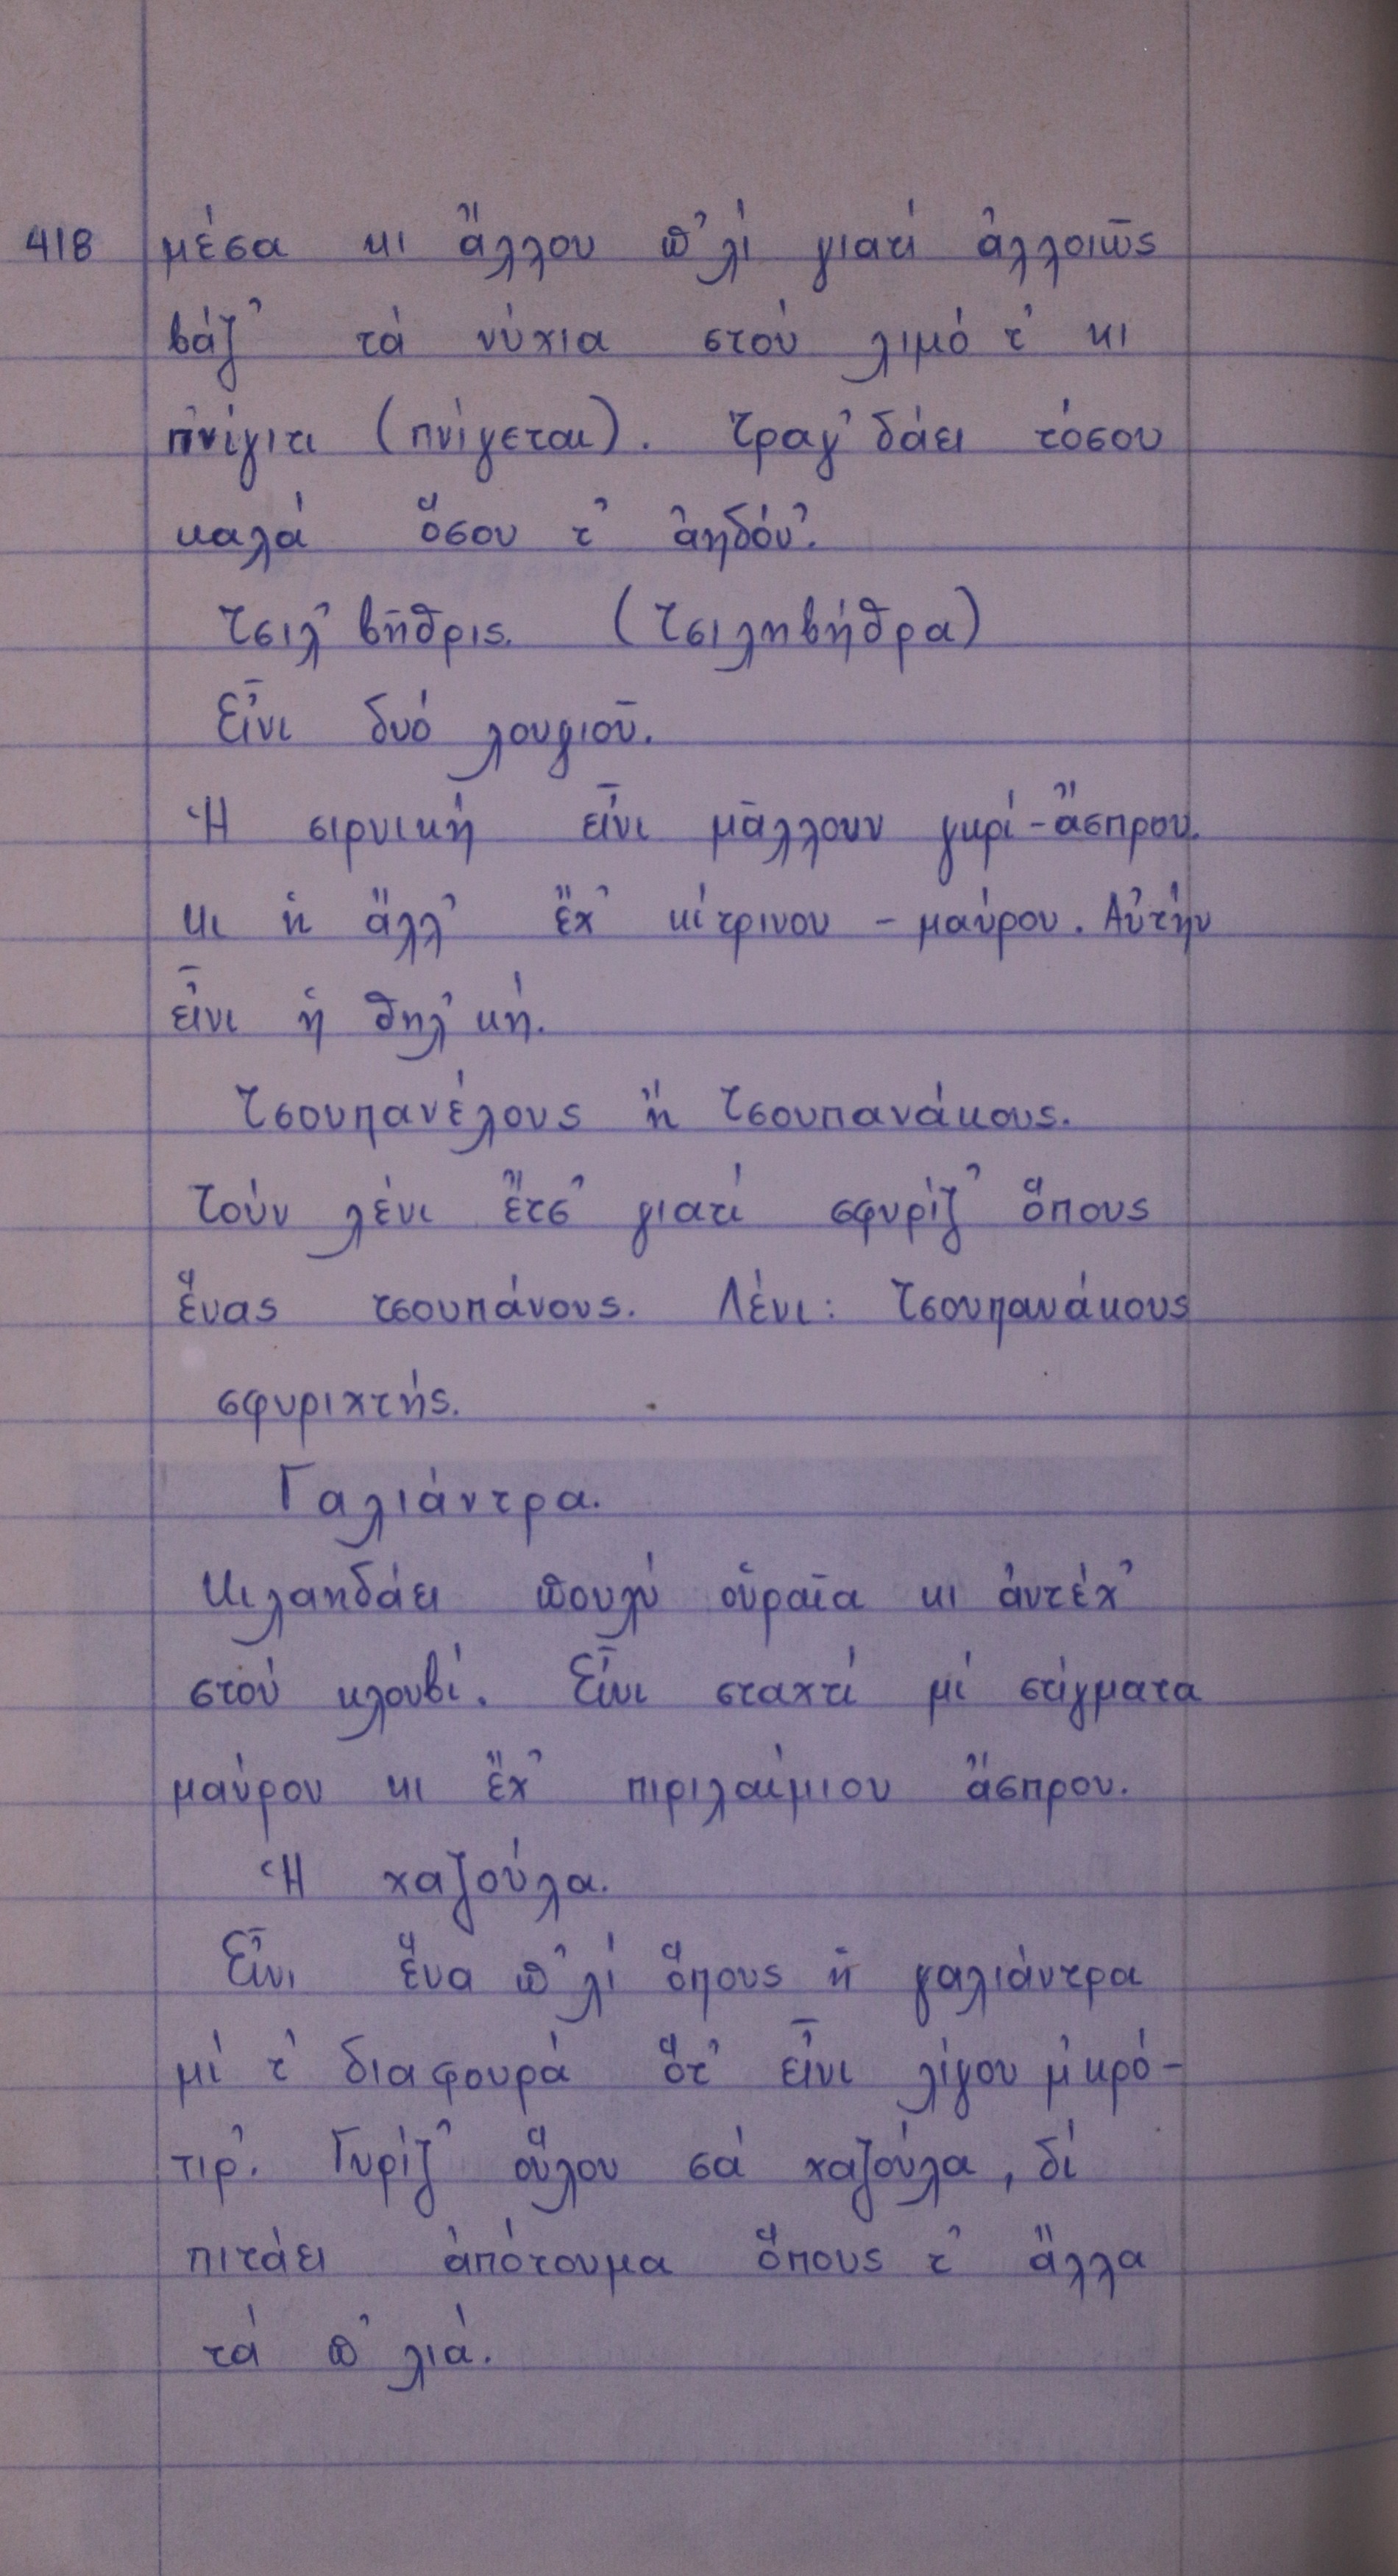 418 μέσα κι ἄλλου π'λί γιατί ἀλλοιῶς
βάζ' τά νύχια στού λιμό τ' κι
πνίγιτι (πνίγεται). Τραγ' δάει τόσου
καλά ὅσου τ' ἀηδόν'.
Τσιλ' βῆθρις. (Τσιληβήθρα)
Εἶνι δυό λουγιοῦ.
Ἡ σιρνική εἶνι μᾶλλουν γκρί-ἄσπρου.
κι ἡ ἄλλ' ἔχ' κίτρινου - μαύρου. Αὐτήν
εἶνι ἡ θηλ' κή.
Τσουπανέλους ἤ Τσουπανάκους.
Τούν λένι ἔτσ' γιατί σφυρίζ' ὅπους
ἕνας τσουπάνους. Λένι: Τσουπανάκους
σφυριχτής.
Γαλιάντρα.
Κιλαηδάει πουλύ οὐραῖα κι ἀντέχ'
στού κλουβί. Εἶνι σταχτί μί στίγματα
μαύρου κι ἔχ' πιριλαίμιου ἄσπρου.
Ἡ χαζούλα.
Εἶνι ἕνα π'λί ὅπους ἡ γαλιάντρα
μί τ' διαφουρά ὅτ' εἶνι λίγου μ'κρό-
τιρ'. Γυρίζ' οὕλου σά χαζούλα, δί
πιτάει ἀπότουμα ὅπους τ' ἄλλα
τά π' λιά.